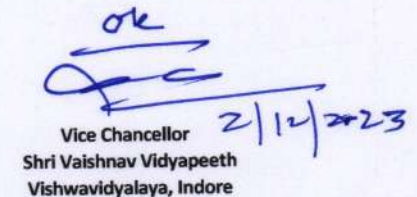 ok
2/12/2023
Vice Chancellor
Shri Vaishnav Vidyapeeth
Vishwavidyalaya, Indore